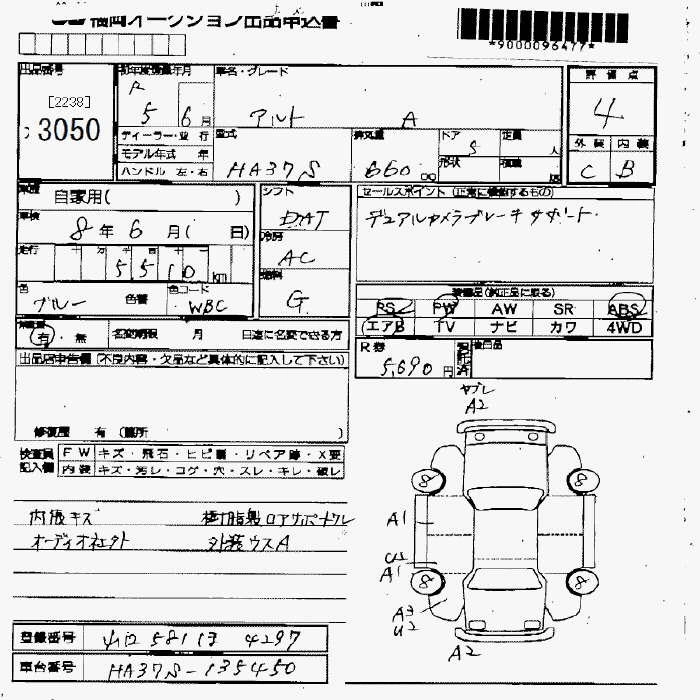 福岡オークション出品申込書
*9000096477*
出品番号
[2238]
3050
初年度登録年月
R 5 6月
車名・グレード
アルト A
評価点
4
外装 内装
C B
ディーラー・並行
モデル年式 年
ハンドル 左・右
型式
HA37S
排気量
660 cc
ドア 5
形状
定員 人
積載 kg
車歴
自家用( )
車検
8年 6月( 日)
走行
十 万 千 百 十 一
5 5 1 0 km
色
ブルー
色替
色コード
WBC
シフト
DAT
冷房
AC
燃料
G
セールスポイント (正常に機能するもの)
デュアルカメラブレーキサポート
装備品(純正品に限る)
PS PW AW SR ABS
エアB TV ナビ カワ 4WD
有・無 名変期限 月 日迄に名変できる方
R券
5,690円
後日品
出品店申告欄(不良内容・欠品など具体的に記入して下さい)
修復歴 有 (箇所
検査員記入欄
FW キズ・飛石・ヒビ割・リペア跡・X要
内装 キズ・汚レ・コゲ・穴・スレ・キレ・破レ
内張キズ 樹脂製ロアサポートワレ
オーディオネエクト 外装ウスA
ヤブレ
A2
8 8
A1
U1
A1
8 8
A3
U2
A2
登録番号 山口 581 13 4297
車台番号 HA37S-135450